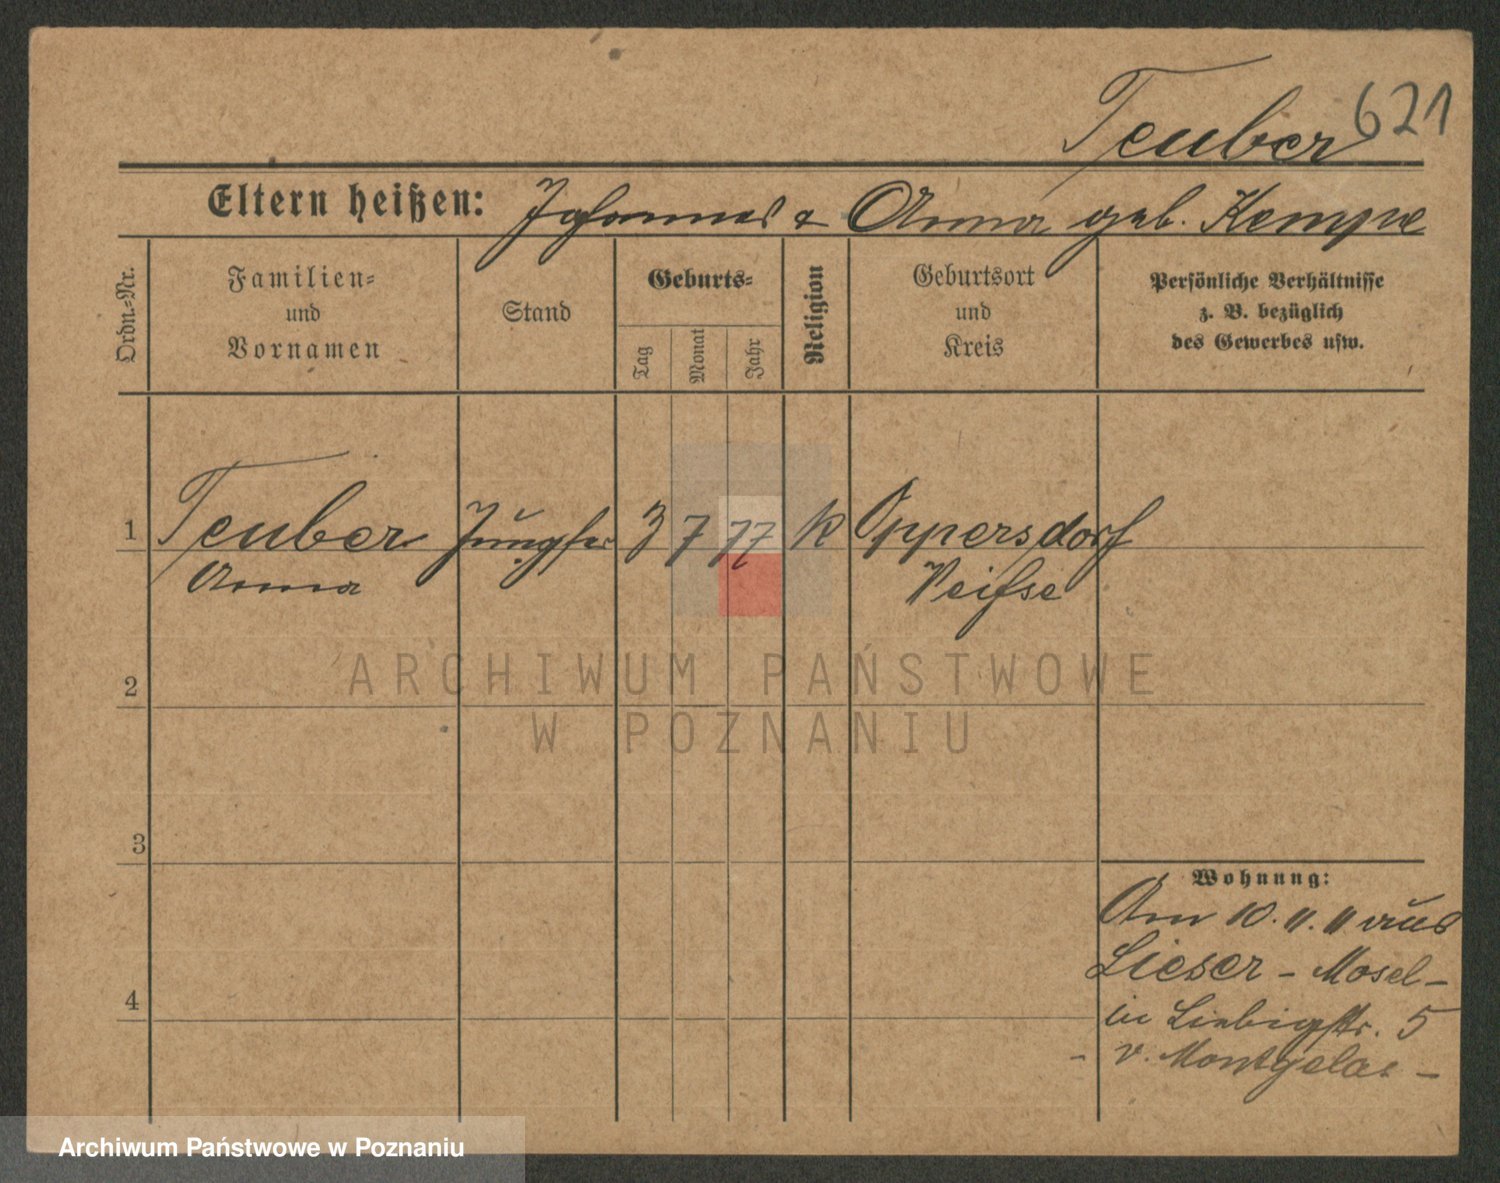 621
Teuber
Eltern heißen: Johannes & Anna geb. Kempe
Ordn.-Nr.
Familien-
und
Vornamen
Stand
Geburts-
Tag
Monat
Jahr
Religion
Geburtsort
und
Kreis
Persönliche Verhältnisse
z. B. bezüglich
des Gewerbes usw.
1
Teuber Jungfer 3 7 77 k Oppersdorf
Anna Neisse
ARCHIWUM PAŃSTWOWE
W POZNANIU
2
3
Wohnung:
Am 10. 11. 11 aus
Lieser - Mosel -
in Liebigstr. 5
- v. Montgelas -
4
Archiwum Państwowe w Poznaniu